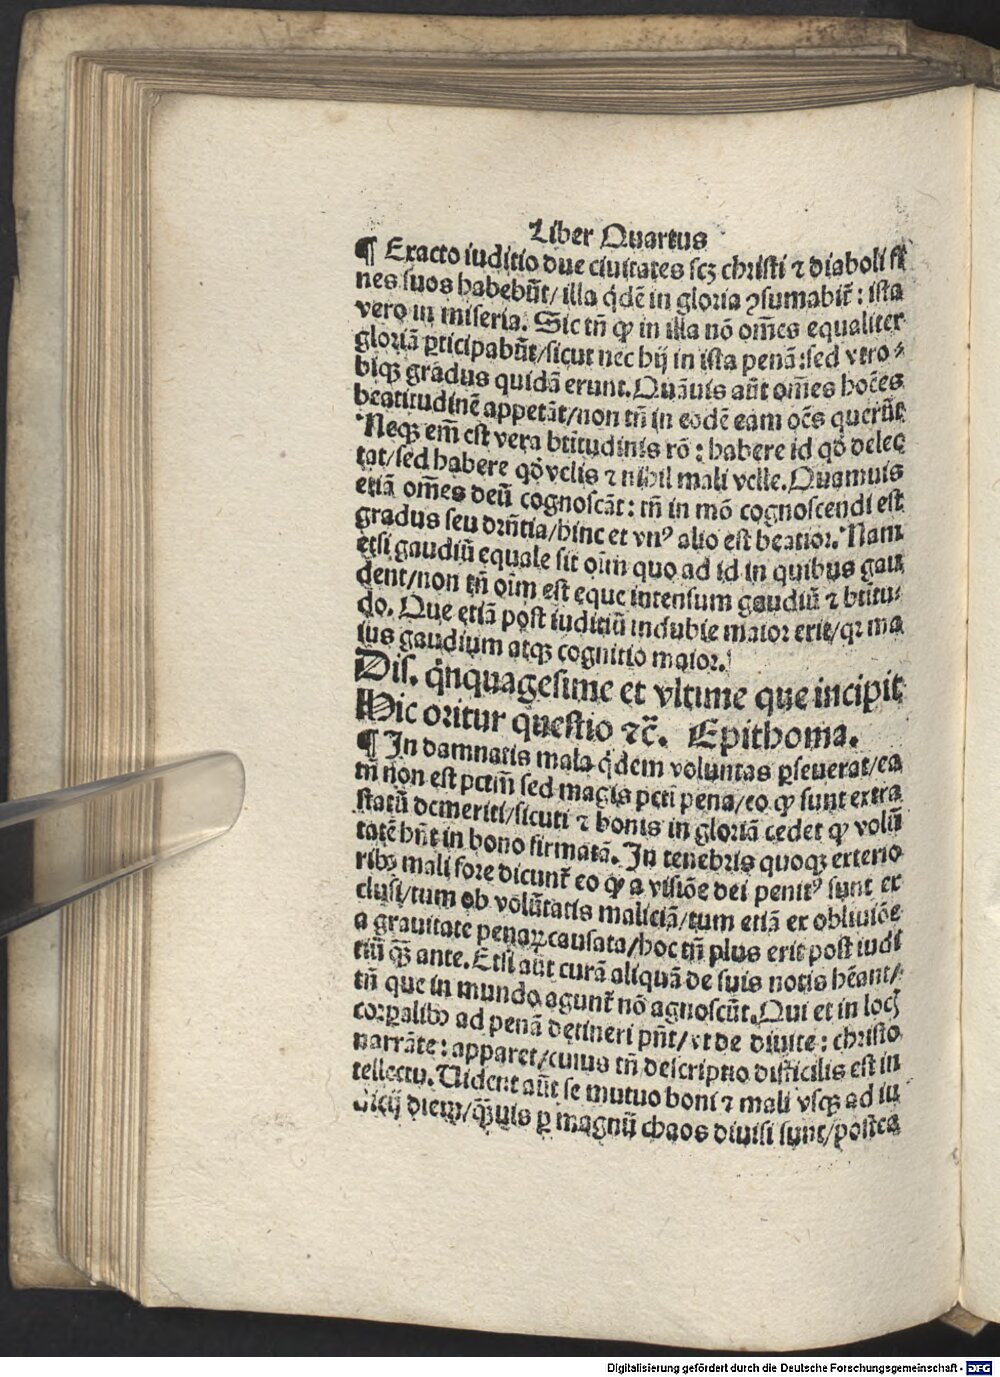 Liber Quartus
¶ Exacto iuditio due ciuitates scꝫ christi ⁊ diaboli fi
nes suos habebūt/ illa qͥdē in gloria ꝯsumabit᷑: ista
vero in miseria. Sic tñ ꝙ in illa nō oḿes equaliter
gloriā ꝑticipabūt/sicut nec hij in ista penā:sed vtro⸗
biqꝫ gradus quidā erunt. Quāuis aūt oḿes hoı̄es
beatitudinē appetāt/non tñ in eodē eam oēs querūt
Neqꝫ em̄ est vera btı̄tudinis rō : habere id qd̓ delec
tat/sed habere qd̓ velis ⁊ nihil mali velle. Quamuis
etiā oḿes deū cognoscāt: tñ in mō cognoscendi est
gradus seu drñtia/hinc et vnꝰ alio est beatior. Nam
etsi gaudiū equale sit oı̄m quo ad id in quibus gau
dent/non tñ oı̄m est eque intensum gaudiū ⁊ btı̄tu⸗
do. Que etiā post iuditiū indubie maior erit/qꝛ ma
ius gaudium atqꝫ cognitio maior.
Dis. qͥnquagesime et vltime que incipit
Hic oritur questio ⁊c̄. Epithoma.
¶ In damnatis mala qͥdem voluntas ꝑseuerat/ea
tñ non est pctm̄ sed magis pcti pena/eo ꝙ sunt extra
statū demeriti/sicuti ⁊ bonis in gloriā cedet ꝙ volū
tatē hn̄t in bono firmatā. In tenebris quoqꝫ exterio
ribꝫ mali fore dicunt᷑ eo ꝙ a visiōe dei penitꝰ sunt ex
clusi/tum ob volūtatis maliciā/tum etiā ex obliuiōe
a grauitate penaꝝ causata/hoc tñ plus erit post iudi
tiū qͣꝫ ante. Etsi aūt curā aliquā de suis notis hēant/
tñ que in mundo agunt᷑ nō agnoscūt. Qui et in locꝭ
corꝑalibꝫ ad penā detineri pn̄t/vt de diuite : christo
narrāte : apparet/cuius tñ descriptio difficilis est in
tellectu. Uident aūt se mutuo boni ⁊ mali vsqꝫ ad iu
dicij diem/qͣꝫuis ꝑ magnū chaos diuisi sunt/postea
Digitalisierung gefördert durch die Deutsche Forschungsgemeinschaft - DFG